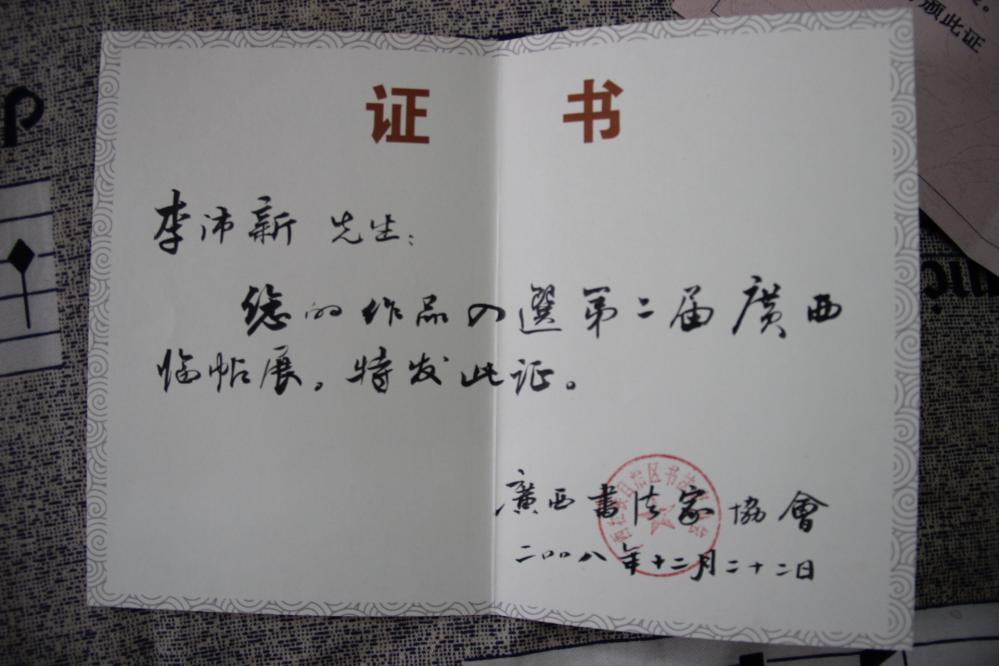 证书
李沛新 先生：
您的作品入選第二届廣西
临帖展。特发此证。
廣西書法家協會
二〇〇八年十二月二十二日
颁此证